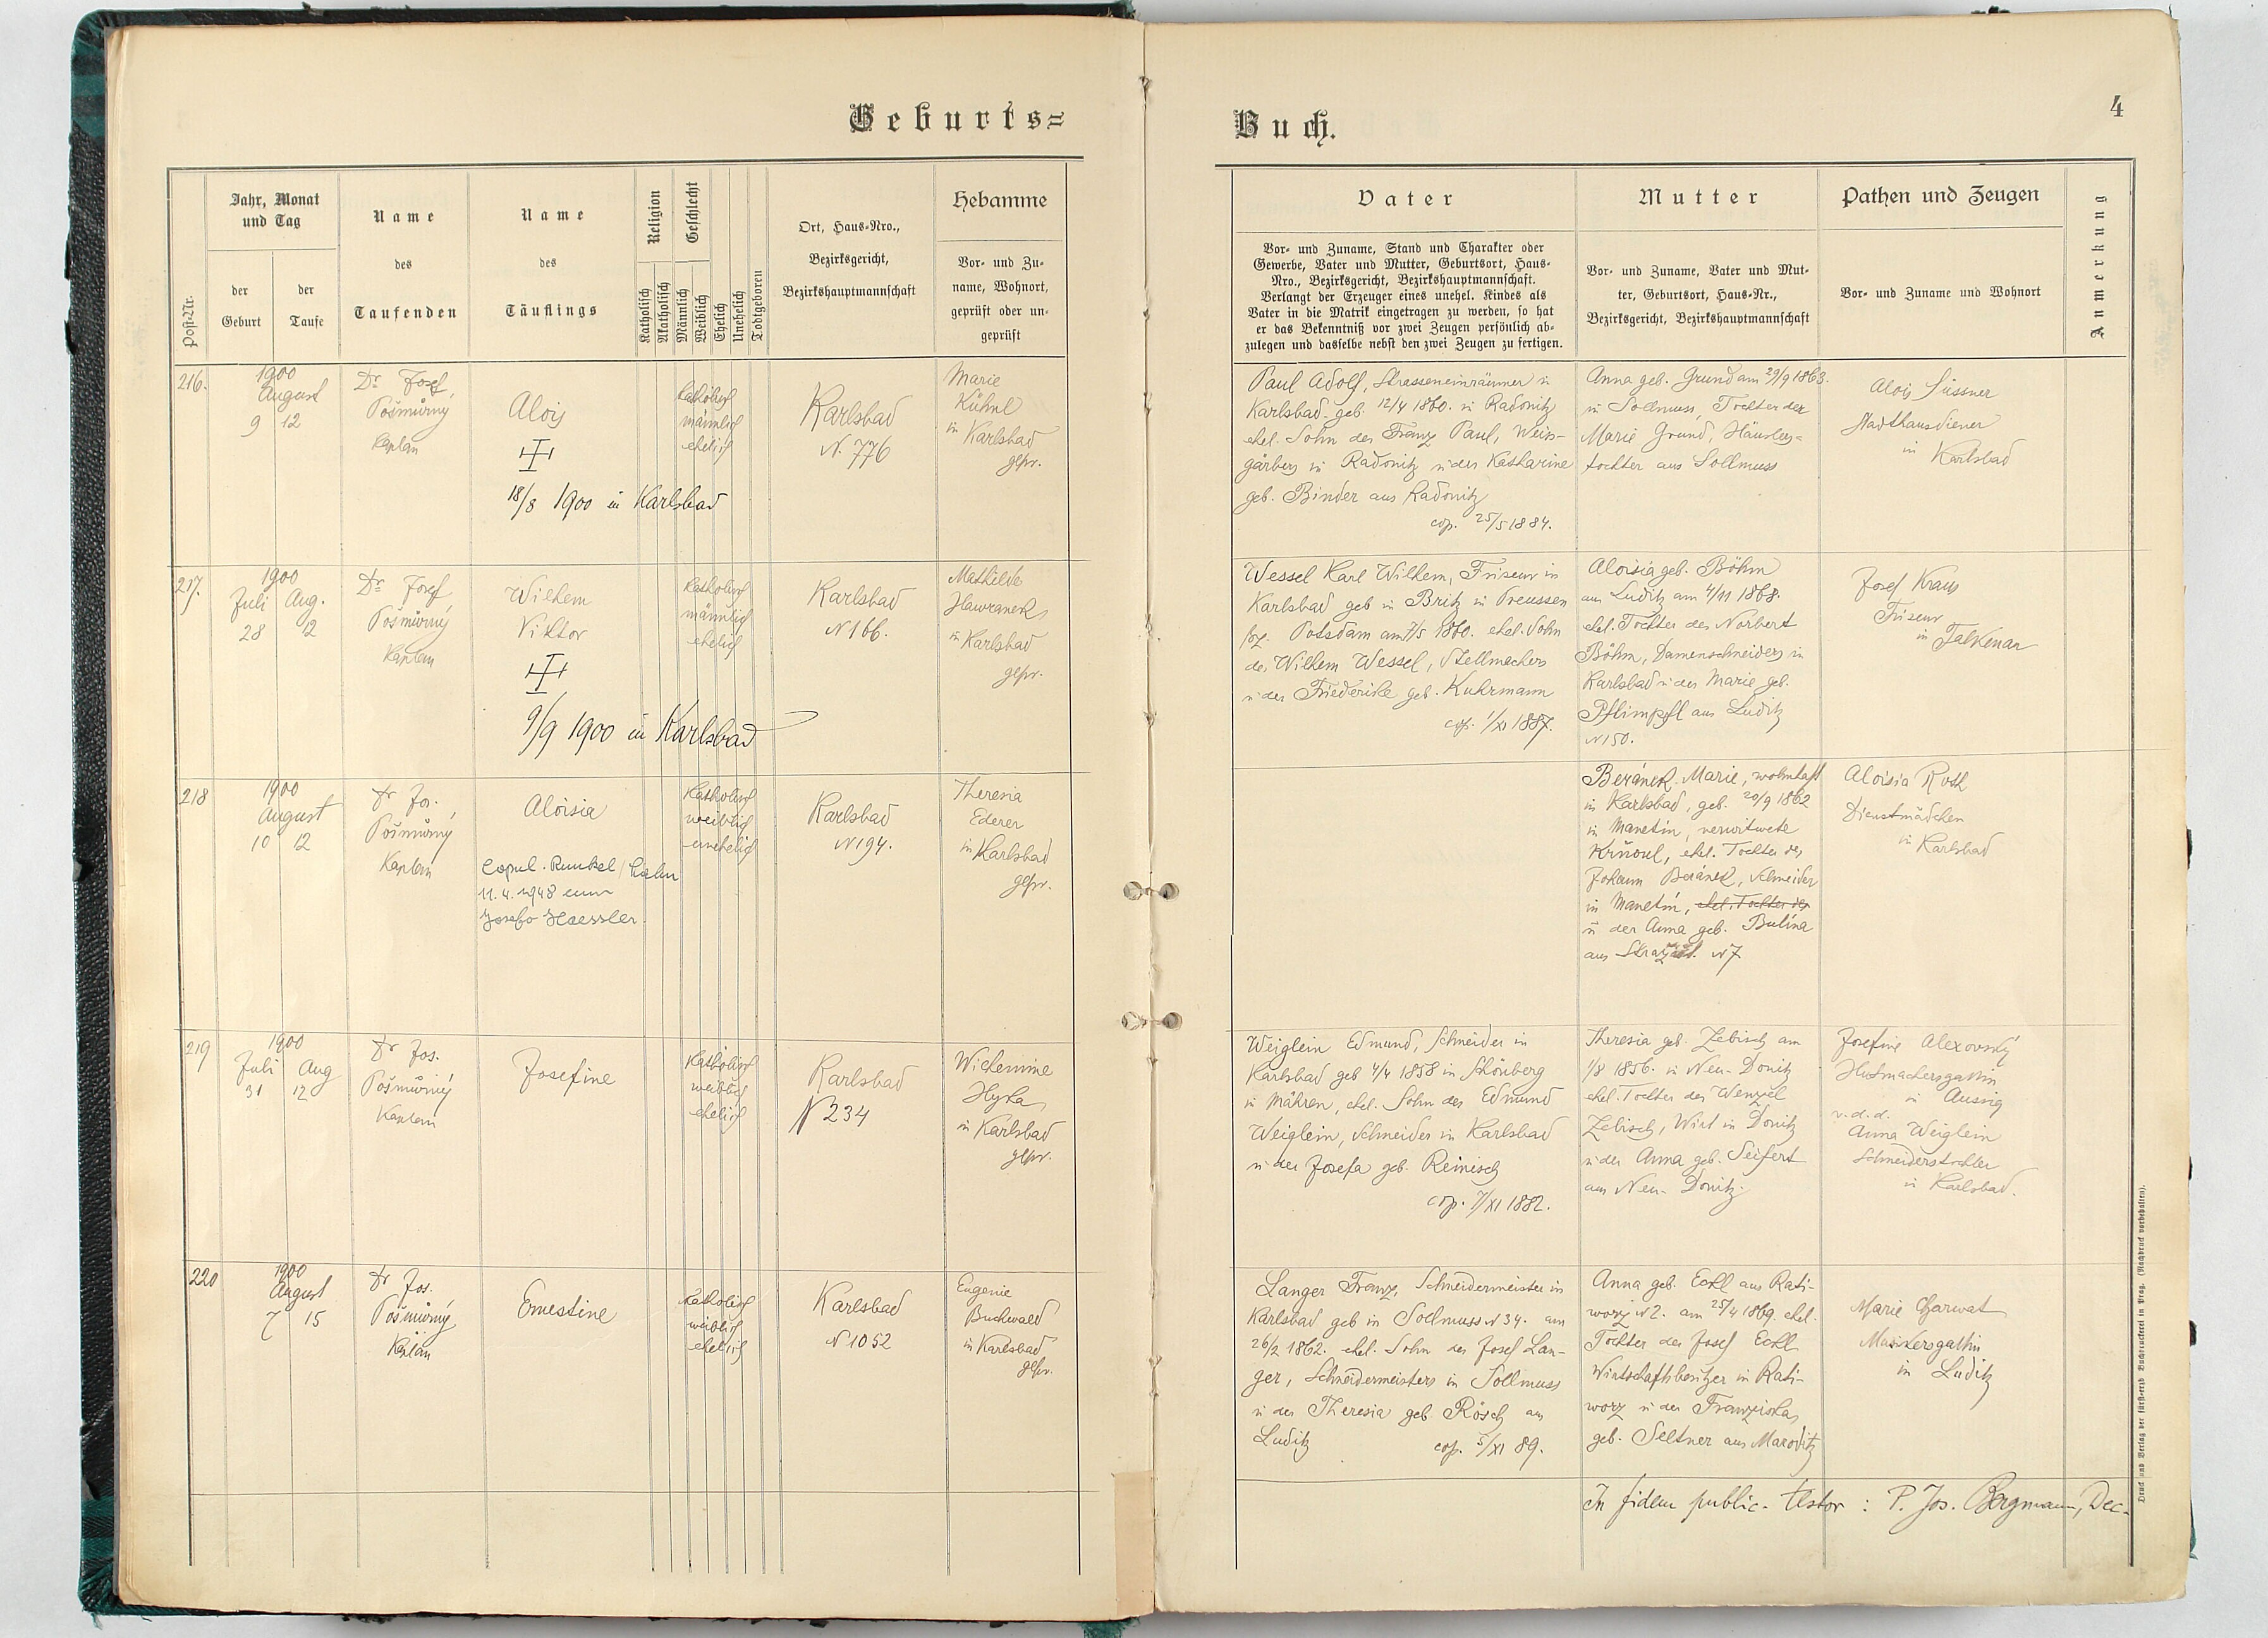 Geburts=
Buch.
4
Post-Nr.
Jahr, Monat
und Tag
der
Geburt
der
Taufe
Name
des
Taufenden
Name
des
Täuflings
Religion
Katholisch
Akatholisch
Geschlecht
Männlich
Weiblich
Ehelich
Unehelich
Todtgeboren
Ort, Haus-Nro.,
Bezirksgericht,
Bezirkshauptmannschaft
Hebamme
Vor- und Zu-
name, Wohnort,
geprüft oder un-
geprüft
Vater
Vor- und Zuname, Stand und Charakter oder
Gewerbe, Vater und Mutter, Geburtsort, Haus-
Nro., Bezirksgericht, Bezirkshauptmannschaft.
Verlangt der Erzeuger eines unehel. Kindes als
Vater in die Matrik eingetragen zu werden, so hat
er das Bekenntniß vor zwei Zeugen persönlich ab-
zulegen und dasselbe nebst den zwei Zeugen zu fertigen.
Mutter
Vor- und Zuname, Vater und Mut-
ter, Geburtsort, Haus-Nr.,
Bezirksgericht, Bezirkshauptmannschaft
Pathen und Zeugen
Vor- und Zuname und Wohnort
Anmerkung
216.
1900
August
9 12
Dr Josef
Pošmůrný
Kaplan
Alois
18/8 1900 in Karlsbad
katholisch
männlich
ehelich
Karlsbad
N. 776
Marie
Kühnl
in Karlsbad
gepr.
Paul Adolf, Strasseneinräumer in
Karlsbad geb. 12/4 1860. in Radonitz
ehel. Sohn des Franz Paul, Weiss-
gärbers in Radonitz u der Katharine
geb. Binder aus Radonitz
cop. 25/5 1884.
Anna geb. Grund am 29/9 1863.
in Sollmuss, Tochter der
Marie Grund, Häuslers=
tochter aus Sollmuss
Alois Süssner
Stadthausdiener
in Karlsbad
217.
1900
Juli Aug.
28 12
Dr Josef
Pošmůrný
Kaplan
Wilhem
Viktor
9/9 1900 in Karlsbad
katholisch
männlich
ehelich
Karlsbad
N 166.
Mathilde
Hawranek
in Karlsbad
gepr.
Wessel Karl Wilhem, Friseur in
Karlsbad geb in Britz in Preussen
Potsdam am 7/5 1860. ehel. Sohn
des Wilhem Wessel, Stellmachers
u der Friederike geb. Kuhrmann
cop. 1/XI 1887.
Aloisia geb. Böhm
aus Luditz am 4/11 1868.
ehel. Tochter des Norbert
Böhm, Damenschneiders in
Karlsbad u der Marie geb.
Pflimpfl aus Luditz
N 150.
Josef Kraus
Friseur
in Falkenau
218
1900
August
10 12
Dr Jos.
Pošmůrný
Kaplan
Aloisia
Copul. Runkel/Lahn
11.4.1948 cum
Josefo Haessler.
katholisch
weiblich
unehelich
Karlsbad
N 194.
Theresia
Ederer
in Karlsbad
gepr.
Beránek Marie, wohnhaft
in Karlsbad, geb. 20/9 1862
in Manetín, verwitwete
Krňoul, ehel. Tochter des
Johann Beránek, Schneider
in Manetín, ehel. Tochter des
u der Anna geb. Bulína
aus N 7
Aloisia Roth
Dienstmädchen
in Karlsbad
219
1900
Juli Aug
31 12
Dr Jos.
Pošmůrný
Kaplan
Josefine
katholisch
weiblich
ehelich
Karlsbad
N 234
Wilhemine
Hyka
in Karlsbad
gepr.
Weiglein Edmund, Schneider in
Karlsbad geb 4/4 1858 in Schönberg
in Mähren, ehel. Sohn des Edmund
Weiglein, Schneider in Karlsbad
u der Josefa geb. Reinisch
cop. 7/XI 1882.
Theresia geb. Zebisch am
1/8 1856. in Neu-Donitz
ehel. Tochter des Wenzel
Zebisch, Wirt in Donitz
u der Anna geb. Seifert
aus Neu-Donitz
Josefine Alexovský
Hutmachersgattin
in Aussig
v.d.d.
Anna Weiglein
Schneiderstochter
in Karlsbad.
220
1900
August
7 15
Dr Jos.
Pošmůrný
Kaplan
Ernestine
katholisch
weiblich
ehelich
Karlsbad
N 1052
Eugenie
Buchwald
in Karlsbad
gepr.
Langer Franz, Schneidermeister in
Karlsbad geb in Sollmuss N 34. am
26/2 1862. ehel. Sohn des Josef Lan-
ger, Schneidermeisters in Sollmuss
u der Theresia geb Rösch aus
Luditz cop. 5/XI 89.
Anna geb. Eckl aus Rati-
worz N 2. am 25/4 1869. ehel.
Tochter des Josef Eckl
Wirtschaftsbesitzer in Rati-
worz u der Franziska
geb. Seltner aus Maroditz
Marie Charwat
Musikersgattin
in Luditz
In fidem public. testor : P. Jos. Bergmann, Dec.
Druck und Verlag der fürst-erzb Buchdruckerei in Prag. (Nachdruck vorbehalten).